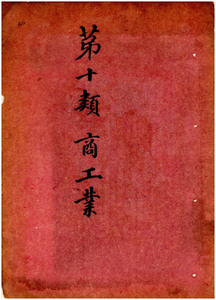 苐十類 商工業